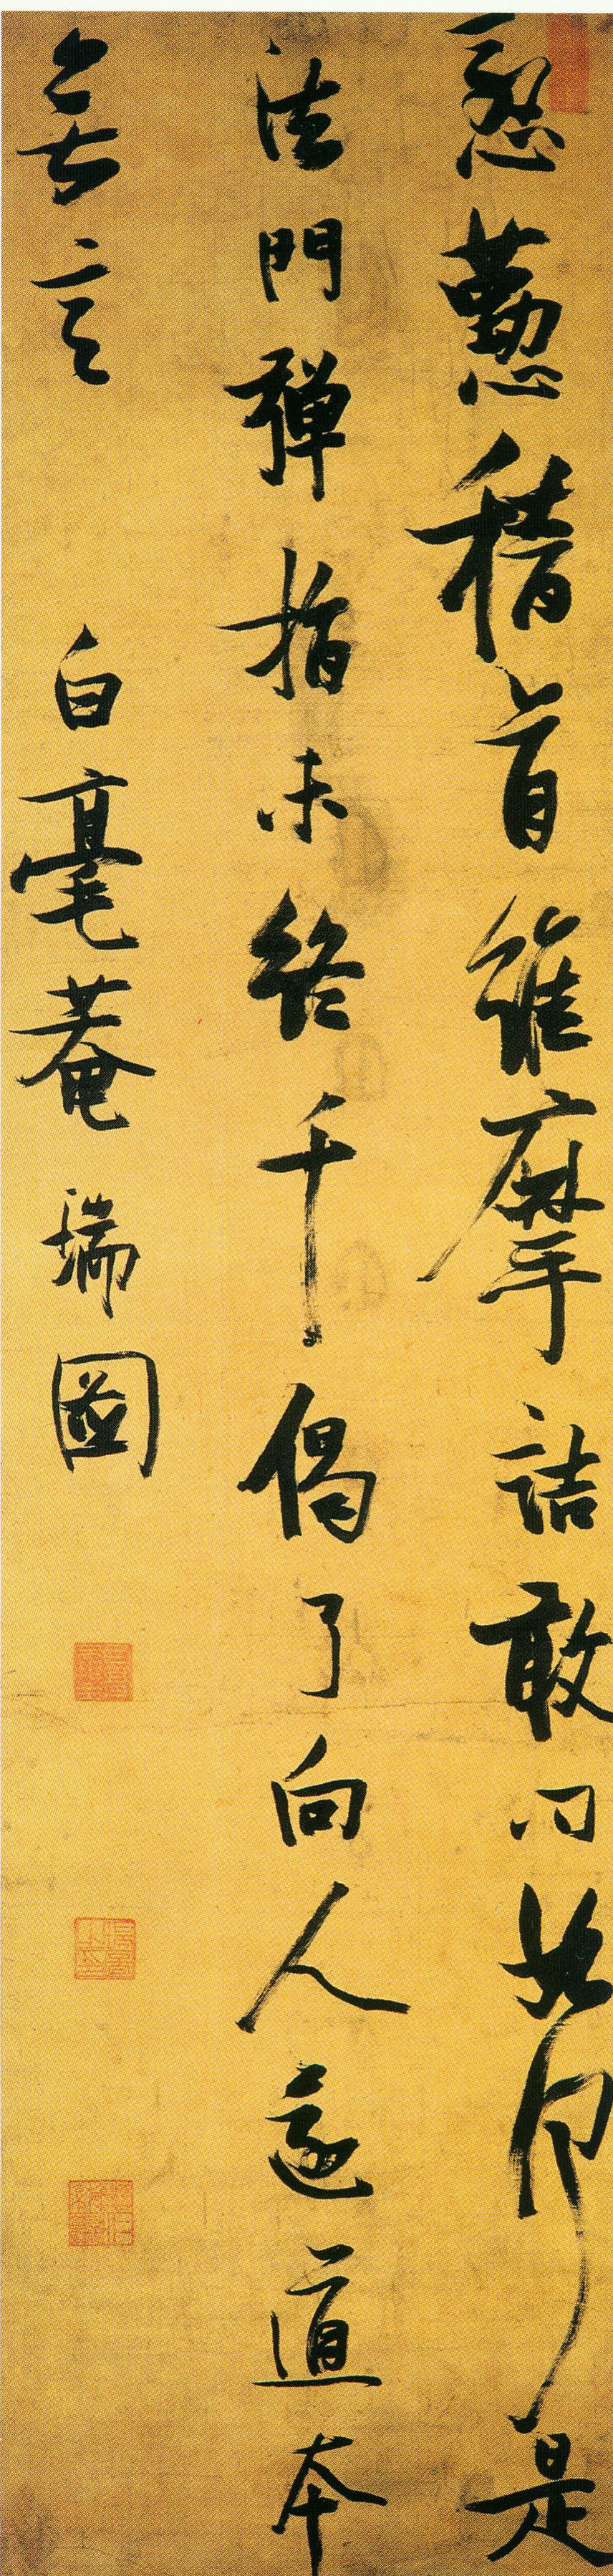 慇懃稽首維摩詰敢問如何是
法門彈指未終千偈了向人還道本
無言 白毫菴 瑞圖